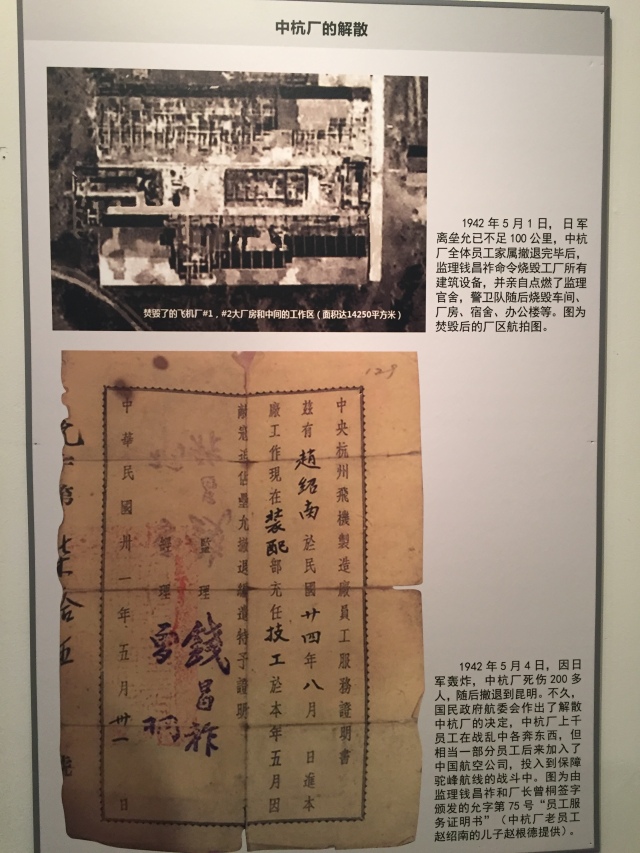 中杭厂的解散
焚毁了的飞机厂#1，#2大厂房和中间的工作区（面积达14250平方米）
1942 年 5 月 1 日，日军
离垒允已不足 100 公里，中杭
厂全体员工家属撤退完毕后，
监理钱昌祚命令烧毁工厂所有
建筑设备，并亲自点燃了监理
官舍，警卫队随后烧毁车间、
厂房、宿舍、办公楼等。图为
焚毁后的厂区航拍图。
129
中央杭州飛機製造廠員工服務證明書
茲有趙紹南於民國廿四年八月　日進本
廠工作現在裝配部充任技工於本年五月因
敵寇進佔壘允撤退緬邊特予證明
監理 錢昌祚
經理
中華民國卅一年五月卅一日
1942 年 5 月 4 日，因日
军轰炸，中杭厂死伤 200 多
人，随后撤退到昆明。不久，
国民政府航委会作出了解散
中杭厂的决定，中杭厂上千
员工在战乱中各奔东西，但
相当一部分员工后来加入了
中国航空公司，投入到保障
驼峰航线的战斗中。图为由
监理钱昌祚和厂长曾桐签字
颁发的允字第 75 号“员工服
务证明书”（中杭厂老员工
赵绍南的儿子赵根德提供）。